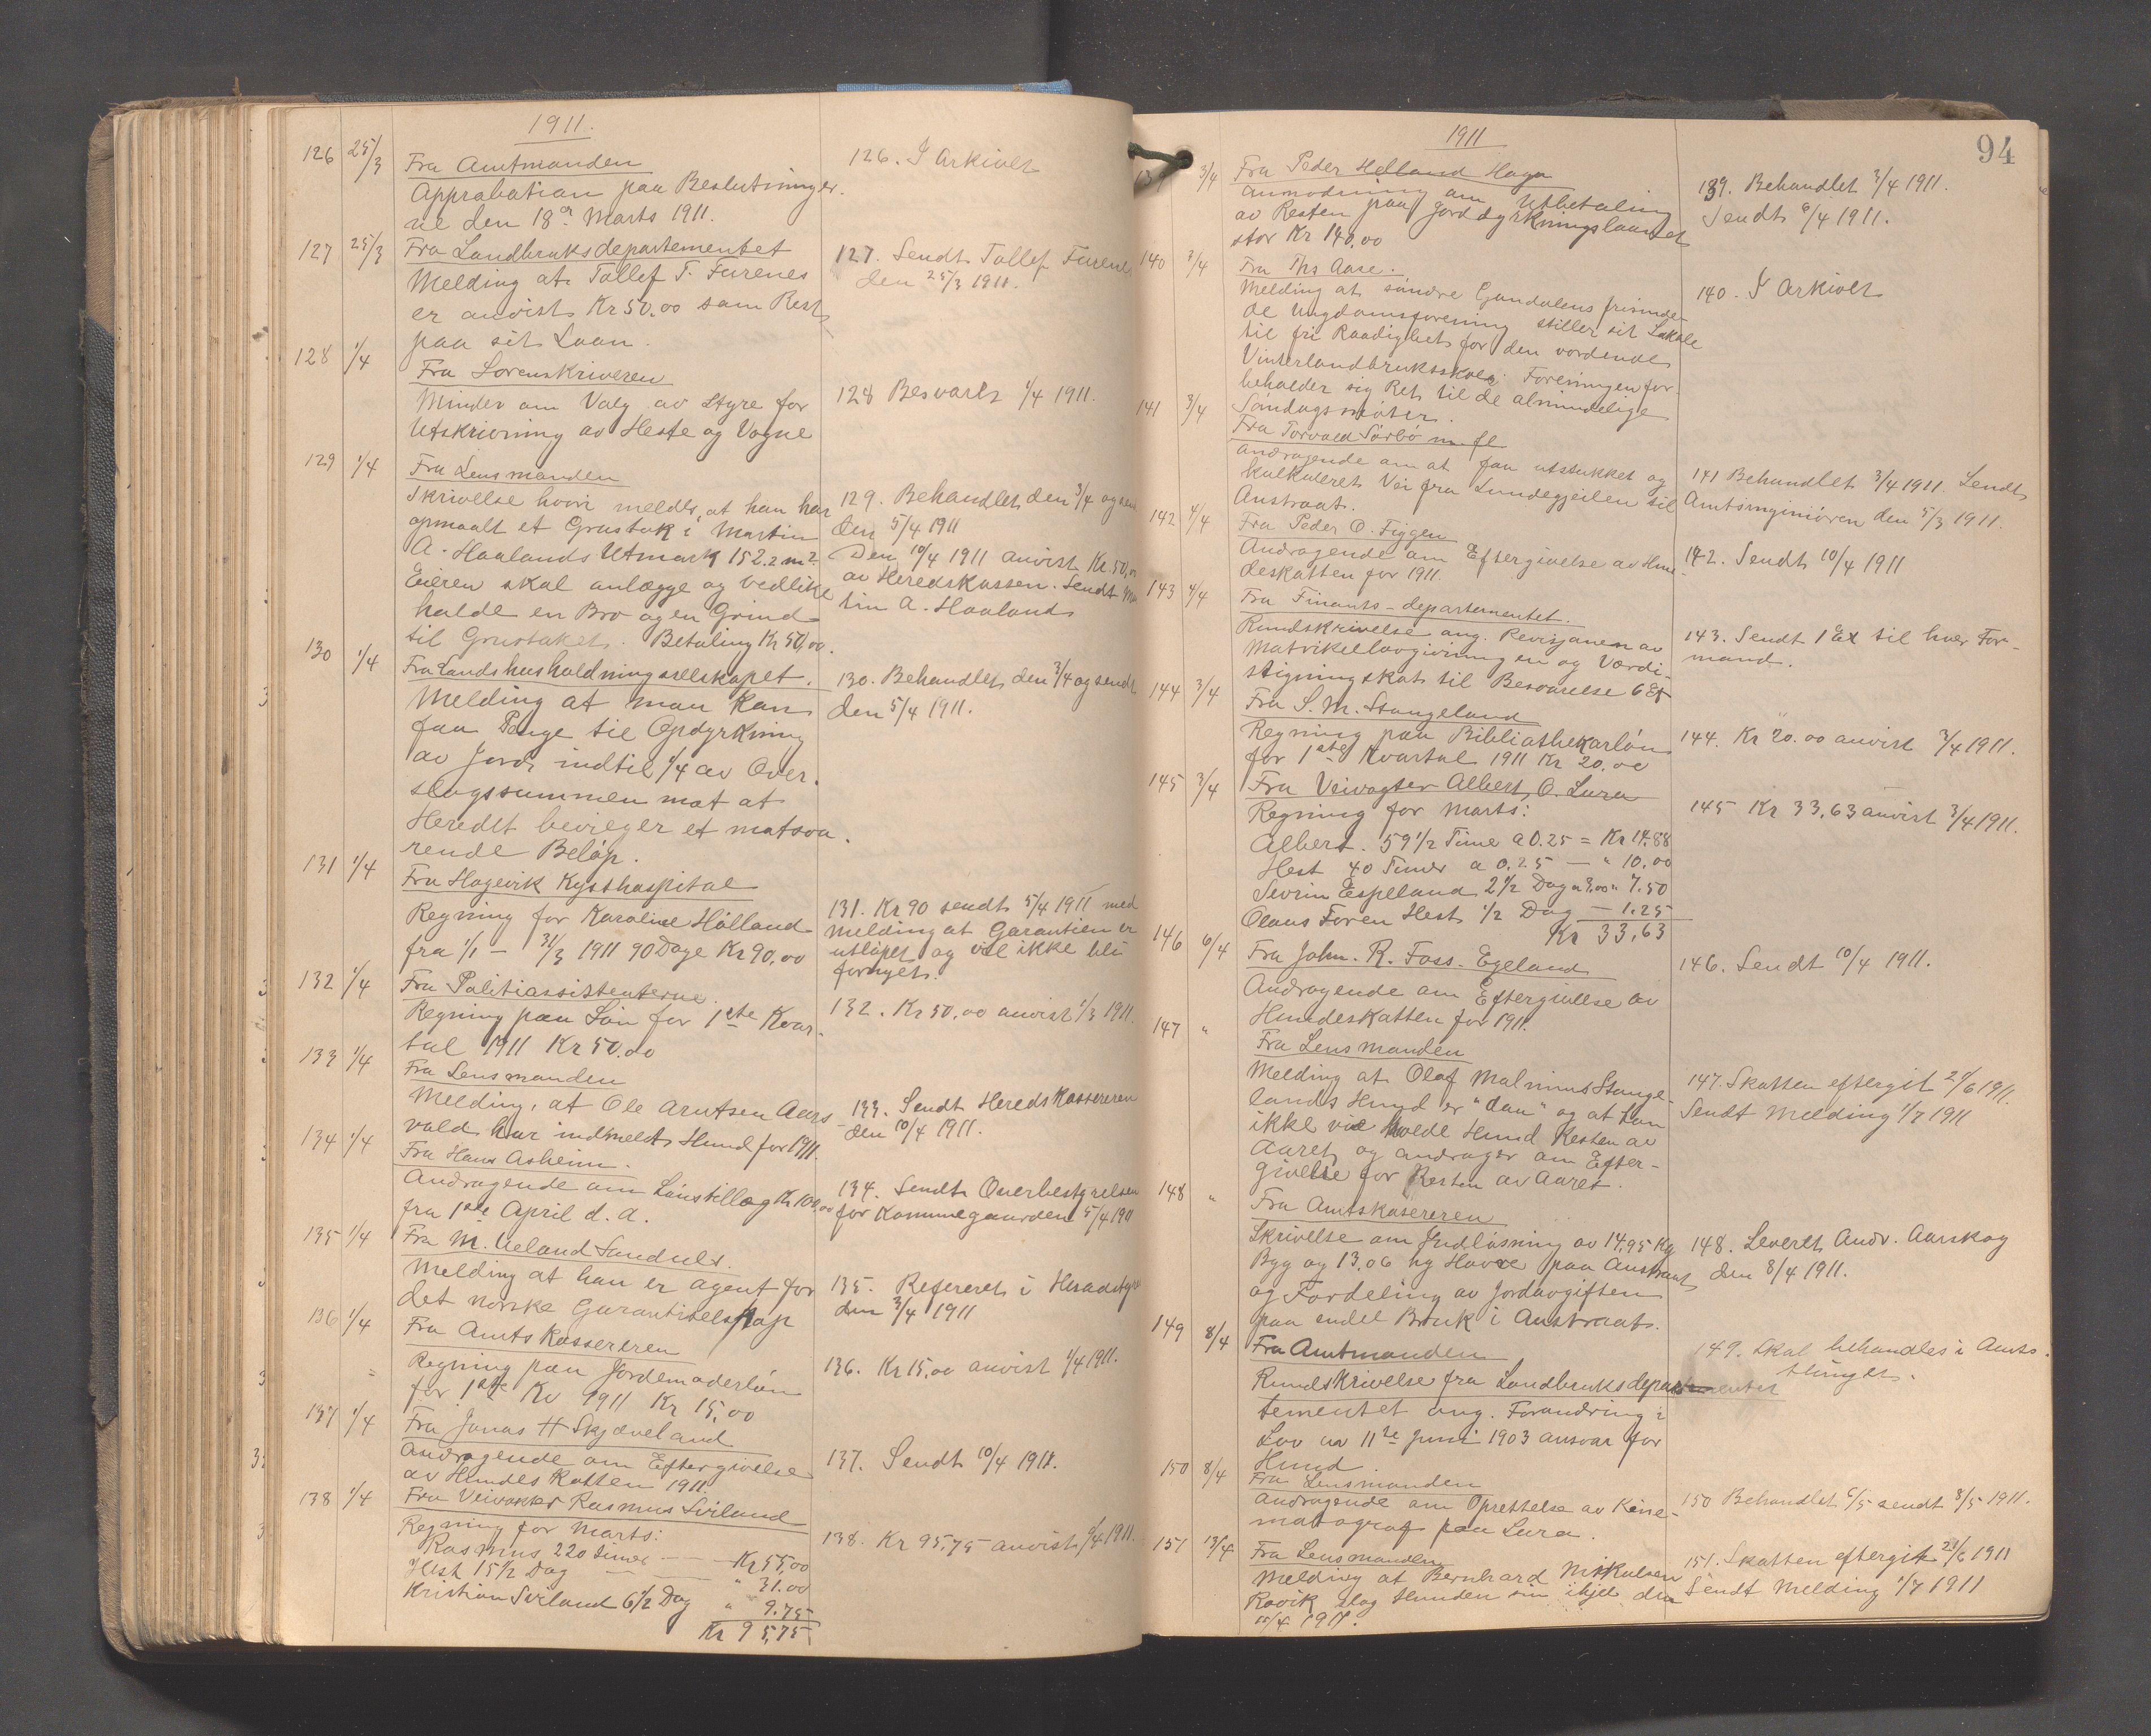 1911.
126 25/3 Fra Amtmanden
Approbation paa Beslutninger
ne den 18de Marts 1911.
126. I Arkivet
127 25/3 Fra Landbruksdepartementet
Melding at Tollef T. Furenes
er anvist Kr 50.00 som Rest
paa sit Laan.
127. Sendt Tollef Furenes
den 25/3 1911.
128 1/4 Fra Sorenskriveren
Minder om Valg av Styre for
Utskrivning av Heste og Vogne
128 Besvart 1/4 1911.
129 1/4 Fra Lensmanden
Skrivelse hvori meldes, at han har
opmaalt et Grustak i Martin
A. Haalands Utmark 152.2 m2
Eieren skal anlægge og vedlike
holde en Bro og en Grind
til Grustaket. Betaling Kr 50,00.
129. Behandlet den 3/4 og sendt
den 5/4 1911
Den 10/4 1911 anvist Kr. 50,00
av Heredskassen. Sendt Mar
tin A. Haaland
130 1/4 Fra Landshusholdningsselskapet.
Melding at man kan
faa Penge til Opdyrkning
av Jord indtil 1/4 av Over-
slagssummen mot at
Heredet bevilger et motsva-
rende Beløp.
130. Behandlet den 3/4 og sendt
den 5/4 1911.
131 1/4 Fra Hagevik Kysthospital
Regning for Karoline Hølland
fra 1/1 - 31/3 1911 90 Dage Kr 90,00
131. Kr 90 sendt 5/4 1911 med
melding at Garantien er
utløpet og vil ikke bli
fornyet.
132 1/4 Fra Politiassistenterne.
Regning paa Løn for 1ste Kvar-
tal 1911 Kr 50.00
132. Kr 50,00 anvist 1/3 1911.
133 1/4 Fra Lensmanden
Melding, at Ole Arntsen Aars
vold har indmeldt Hund for 1911.
133. Sendt Heredskassereren
den 10/4 1911.
134 1/4 Fra Hans Asheim.
Andragende om Lønstillæg Kr 100,00
fra 1ste April d. A.
134. Sendt Overbestyrelsen
for Kommunegaarden 5/4 1911
135 1/4 Fra M. Ueland Sandnes.
Melding at han er agent for
det norske Garantiselskap
135. Refereret i Heradstyre
den 3/4 1911
136 1/4 Fra Amtskassereren
Regning paa Jordemoderløn
for 1ste Kv 1911 Kr 15,00
136. Kr 15,00 anvist 1/4 1911.
137 1/4 Fra Jonas H Skjæveland
Andragende om Eftergivelse
av Hundeskatten 1911.
137. Sendt 10/4 1911.
138 1/4 Fra Veivokter Rasmus Sviland
Regning for Marts:
Rasmus 220 Timer — Kr 55,00
Hest 15 1/2 Dag — " 31.00
Kristian Sviland 6 1/2 Dag " 9.75
Kr 95,75
138. Kr 95,75 anvist 1/4 1911.
94
1911
139 3/4 Fra Peder Helland Hage
Anmodning om Utbetaling
av Resten paa Jorddyrkningslaanet
stor Kr 140.00
139. Behandlet 3/4 1911.
Sendt 6/4 1911.
140 3/4 Fra Ths Aase.
Melding at søndre Gandalens frisinde-
de Ungdomsforening stiller sit Lokale
til fri Raadighet for den vordende
Vinterlandbruksskole. Foreningen for-
beholder sig Ret til de almindelige
Søndagsmøter.
140. I Arkivet
141 3/4 Fra Torvald Sørbø m. fl
Andragende om at faa utstukket og
kalkuleret Vei fra Lundegeilen til
Austraat.
141 Behandlet 3/4 1911 Sendt
Amtsingeniøren den 5/3 1911.
142 4/4 Fra Peder O. Figgen
Andragende om Eftergivelse av Hun-
deskatten for 1911.
142. Sendt 10/4 1911
143 4/4 Fra Finants-departementet.
Rundskrivelse ang. Revisjonen av
Matrikellovgivningen og Værdi-
stigningskat til Besvarelse 6 Ex
143. Sendt 1 Ex til hver For-
mand.
144 3/4 Fra S. M. Stangeland
Regning paa Bibliothekarløn
for 1ste Kvartal 1911 Kr 20.00
144. Kr 20.00 anvist 3/4 1911.
145 3/4 Fra Veivogter Albert O. Lura
Regning for Marts:
Albert. 59 1/2 Time a 0.25 = Kr 14.88
Hest 40 Timer a 0.25 — " 10.00
Sevrin Espeland 2 1/2 Dag a 3,00 " 7.50
Olaus Foren Hest 1/2 Dag — 1.25
Kr 33,63
145 Kr 33,63 anvist 3/4 1911.
146 6/4 Fra John. R. Foss-Egeland
Andragende om Eftergivelse av
Hundeskatten for 1911.
146. Sendt 10/4 1911.
147 " Fra Lensmanden
Melding at Olaf Malmin Stange-
lands Hund er "dau" og at han
ikke vil holde Hund Resten av
Aaret og andrager om Efter-
givelse for Resten av Aaret.
147. Skatten eftergit 21/6 1911.
Sendt Melding 1/7 1911
148 " Fra Amtskasereren
Skrivelse om Indløsning av 14,95 Kg
Byg og 13,06 kg Havre paa Austraat
og Fordeling av Jordavgiften
paa endel Bruk i Austraat.
148. Leveret Andr. Aarskog
den 8/4 1911.
149 8/4 Fra Amtmanden
Rundskrivelse fra Landbruksdepar
tementet ang. Forandring i
Lov av 11te Juni 1903 ansvar for
Hund.
149. Skal behandles i Amts-
tinget.
150 8/4 Fra Lensmanden
Andragende om Oprettelse av Kine-
matograf paa Lura.
150 Behandlet 6/5 sendt 8/5 1911.
151 13/4 Fra Lensmanden
Melding at Bernhard Nikulsen
Rovik slog Hunden sin ihjel den
11/4 1911.
151. Skatten eftergit 21/6 1911
Sendt Melding 1/7 1911